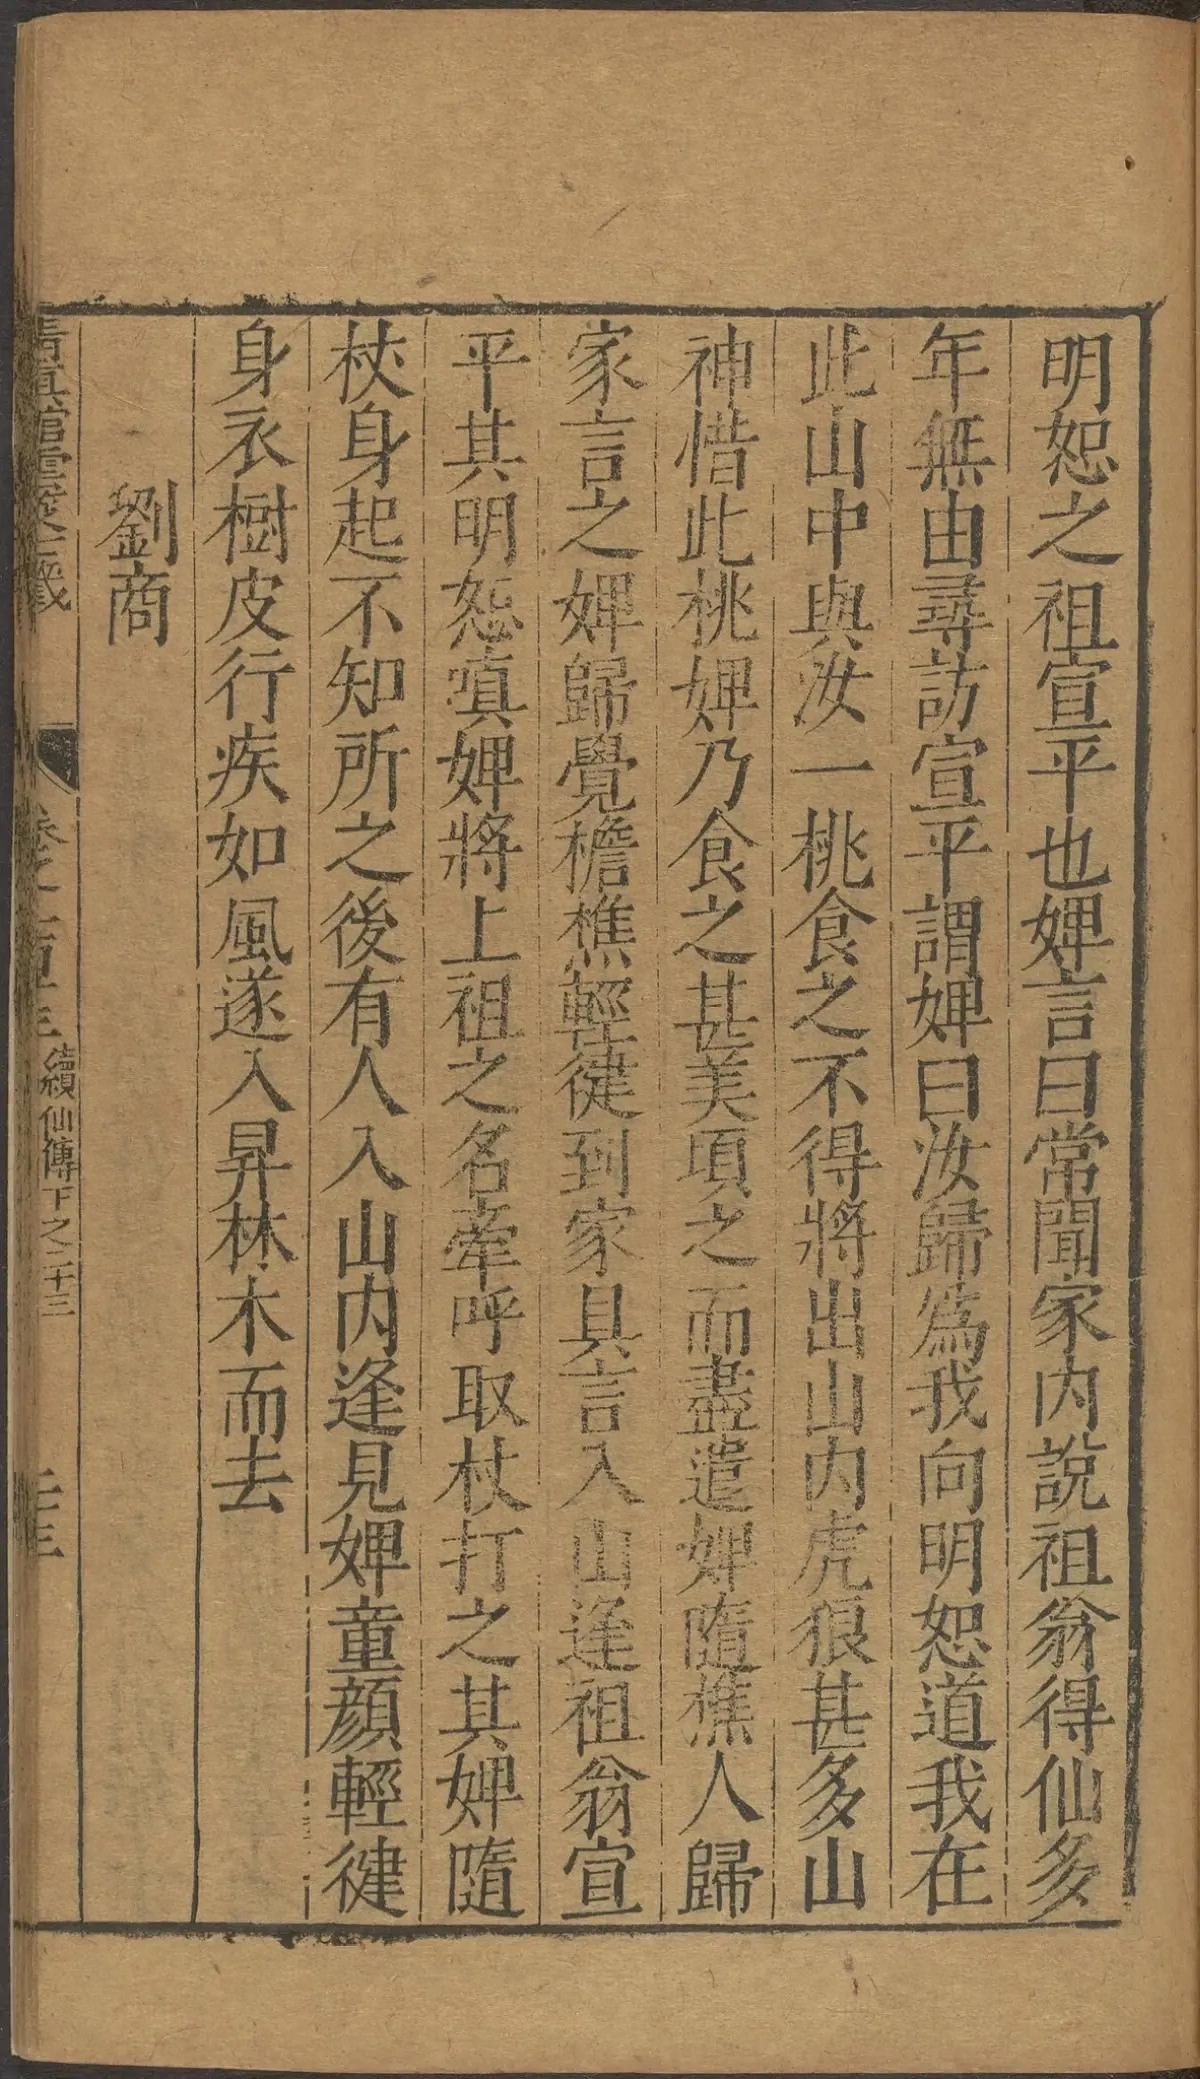 明恕之祖宣平也婢言曰常聞家内說祖翁得仙多
年無由尋訪宣平謂婢曰汝歸為我向明恕道我在
此山中與汝一桃食之不得將出山内虎狼甚多山
神惜此桃婢乃食之甚美頃之而盡遣婢隨樵人歸
家言之婢歸覺檐樵輕徤到家具言入山逢祖翁宣
平其明恕嗔婢將上祖之名牽呼取杖打之其婢隨
杖身起不知所之後有人入山内逢見婢童顔輕徤
身衣樹皮行疾如風遂入昇林木而去
劉商
續仙傳下之二十三